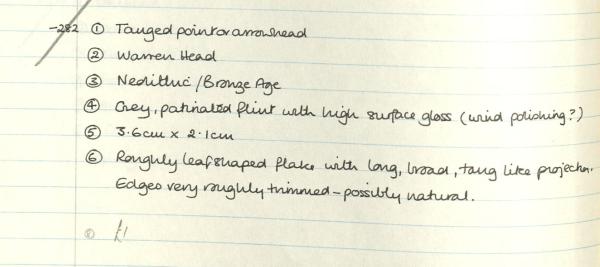 -282 ① Tanged point or arrowhead
② Warren Head
③ Neolithic / Bronze Age
④ Grey, patinated flint with high surface gloss (wind polishing?)
⑤ 3.6cm x 2.1cm
⑥ Roughly leaf shaped flake with long, broad, tang like projection.
Edges very roughly trimmed - possibly natural.
£1